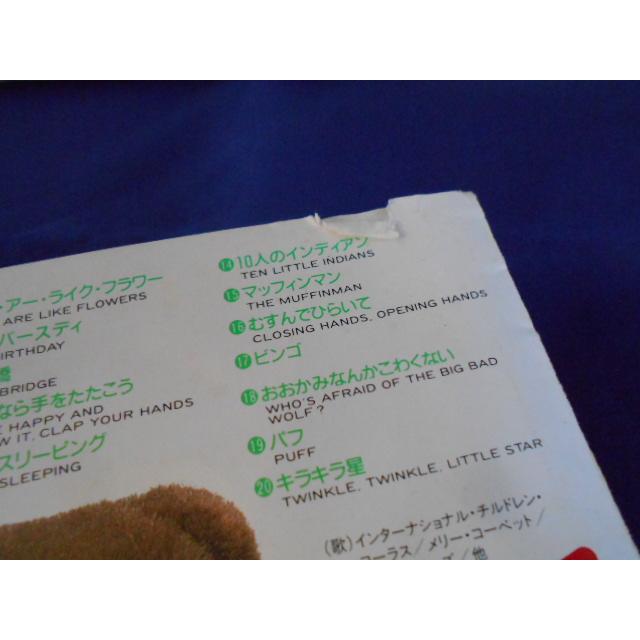 ・アー・ライク・フラワー
ARE LIKE FLOWERS
バースディ
BIRTHDAY
橋
BRIDGE
なら手をたたこう
HAPPY AND
IT, CLAP YOUR HANDS
スリーピング
SLEEPING
⑭ 10人のインディアン
TEN LITTLE INDIANS
⑮ マッフィンマン
THE MUFFINMAN
⑯ むすんでひらいて
CLOSING HANDS, OPENING HANDS
⑰ ビンゴ
⑱ おおかみなんかこわくない
WHO'S AFRAID OF THE BIG BAD
WOLF?
⑲ パフ
PUFF
⑳ キラキラ星
TWINKLE, TWINKLE, LITTLE STAR
(歌)インターナショナル・チルドレン・
コーラス/メリー・コーベット/
他